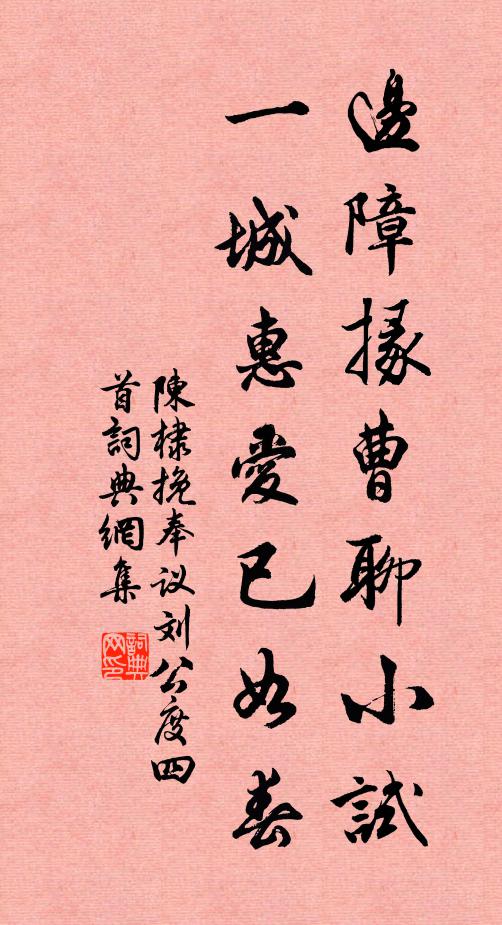 邊障掾曹聊小試
一城惠愛已如春
陳棣挽奉议刘公度四
首詞典網集
詞典网印